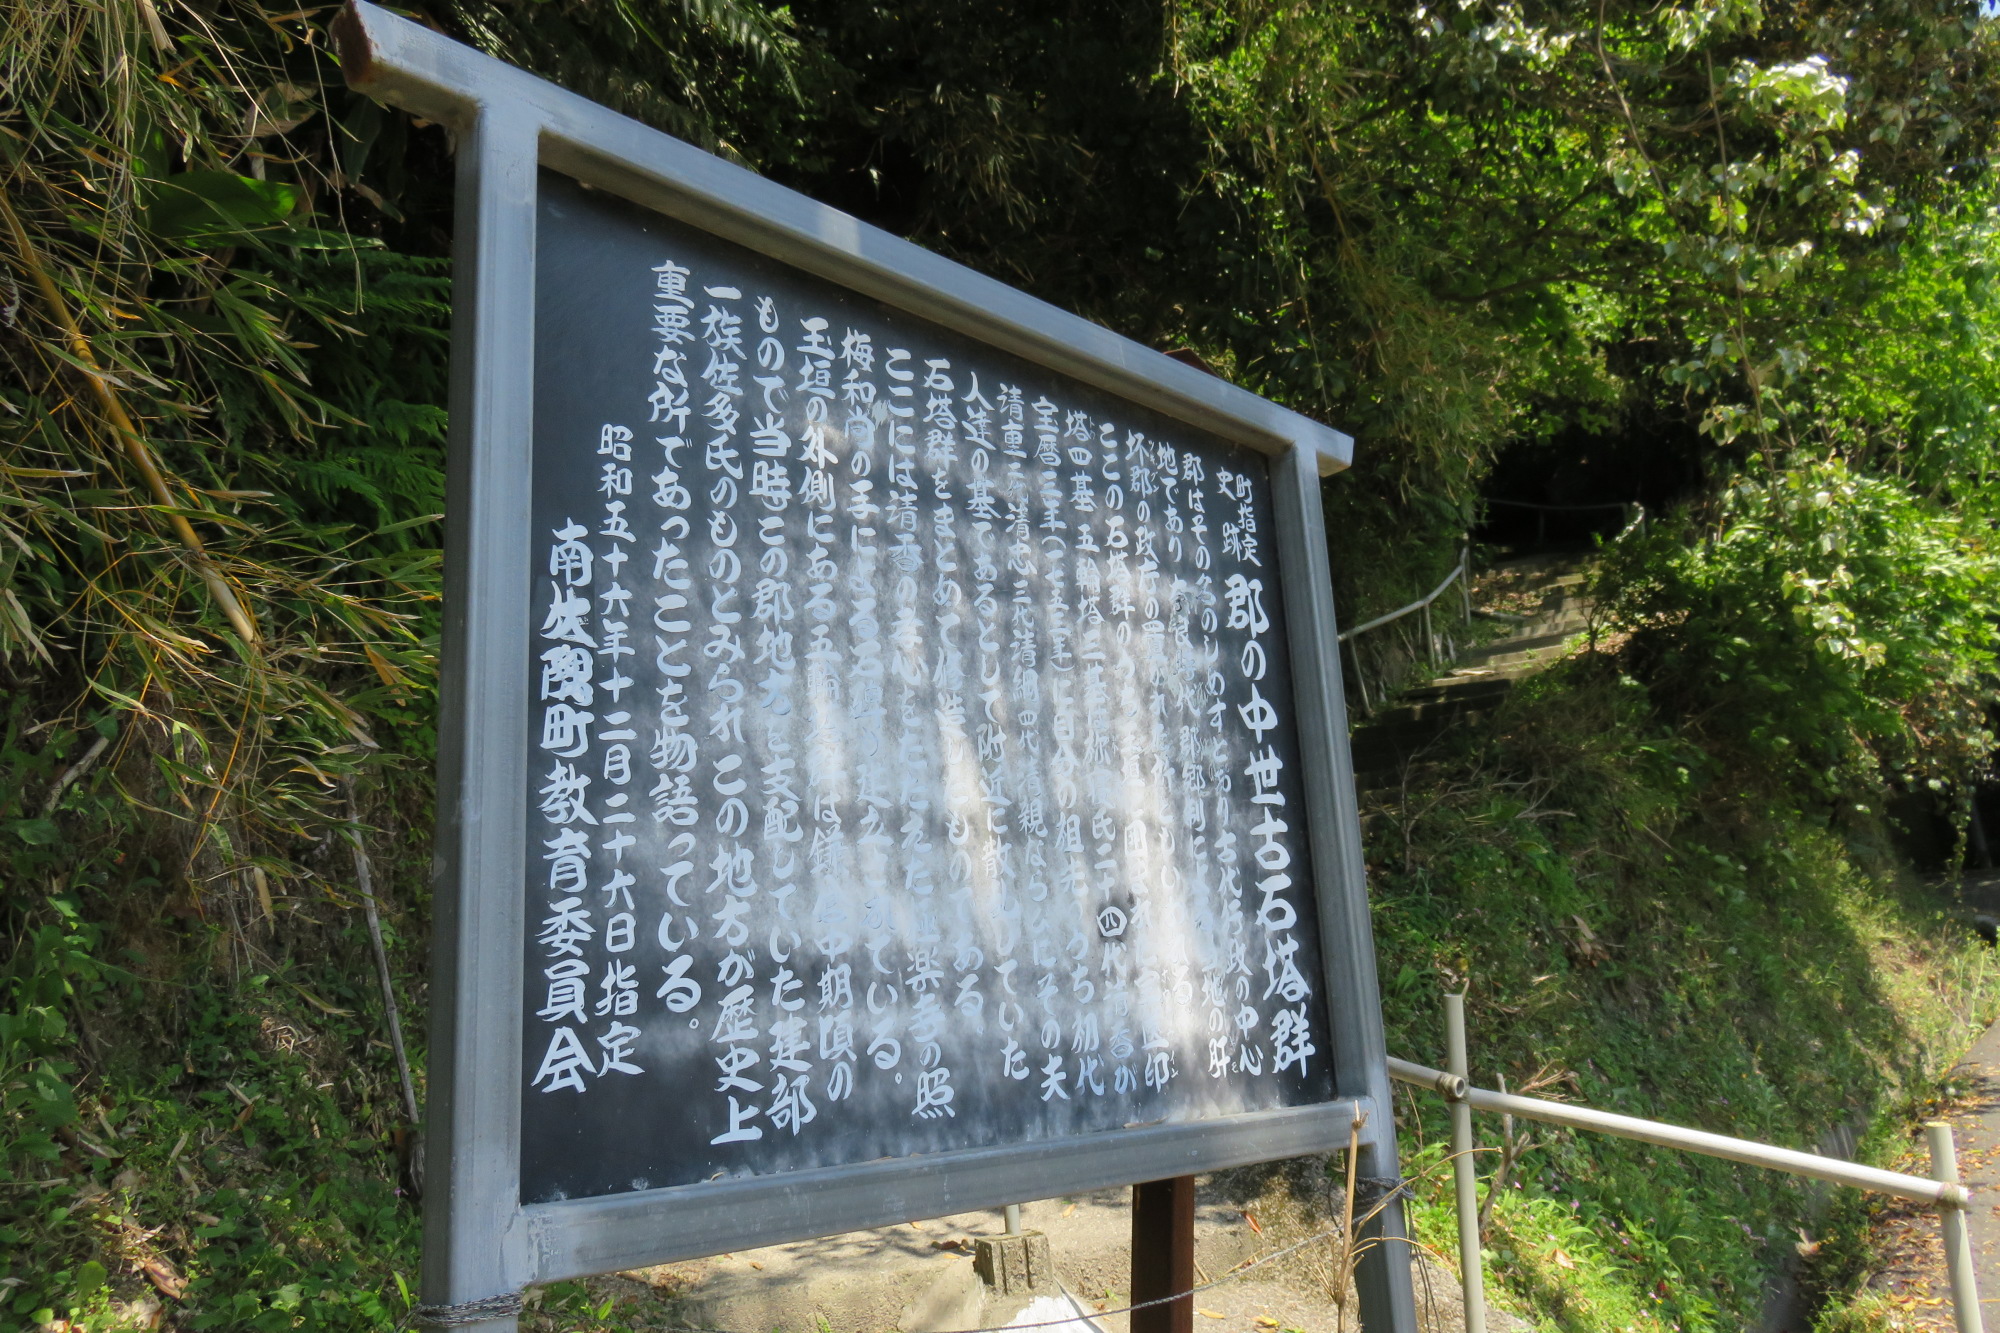 町指定
史跡
郡の中世古石塔群
郡はその名のしめすとおり古代行政の中心
地であり 奈良時代 郡郡 地の肝
坏郡の政庁の置かれた所 れる
ここの石塔群のうち 玉垣 囲 宝 印
塔四基 五輪塔三基は 氏二十四代清香が
宝暦三年(一七五三年)に自分の祖先のうち初代
請重 清忠 三代清綱 四代清親ならびにその夫
人達の墓であるとして附近に散在していた
石塔群をまとめて 造したものである。
ここには清香の孝心をたたえた 楽寺の照
梅和尚の手による石碑も建立されている。
玉垣の外側にある五輪 は鎌倉中期頃の
もので当時この郡地方を支配していた建部
一族佐多氏のものとみられ この地方が歴史上
重要な所であったことを物語っている。
昭和五十六年十二月二十六日指定
南大隅町教育委員会